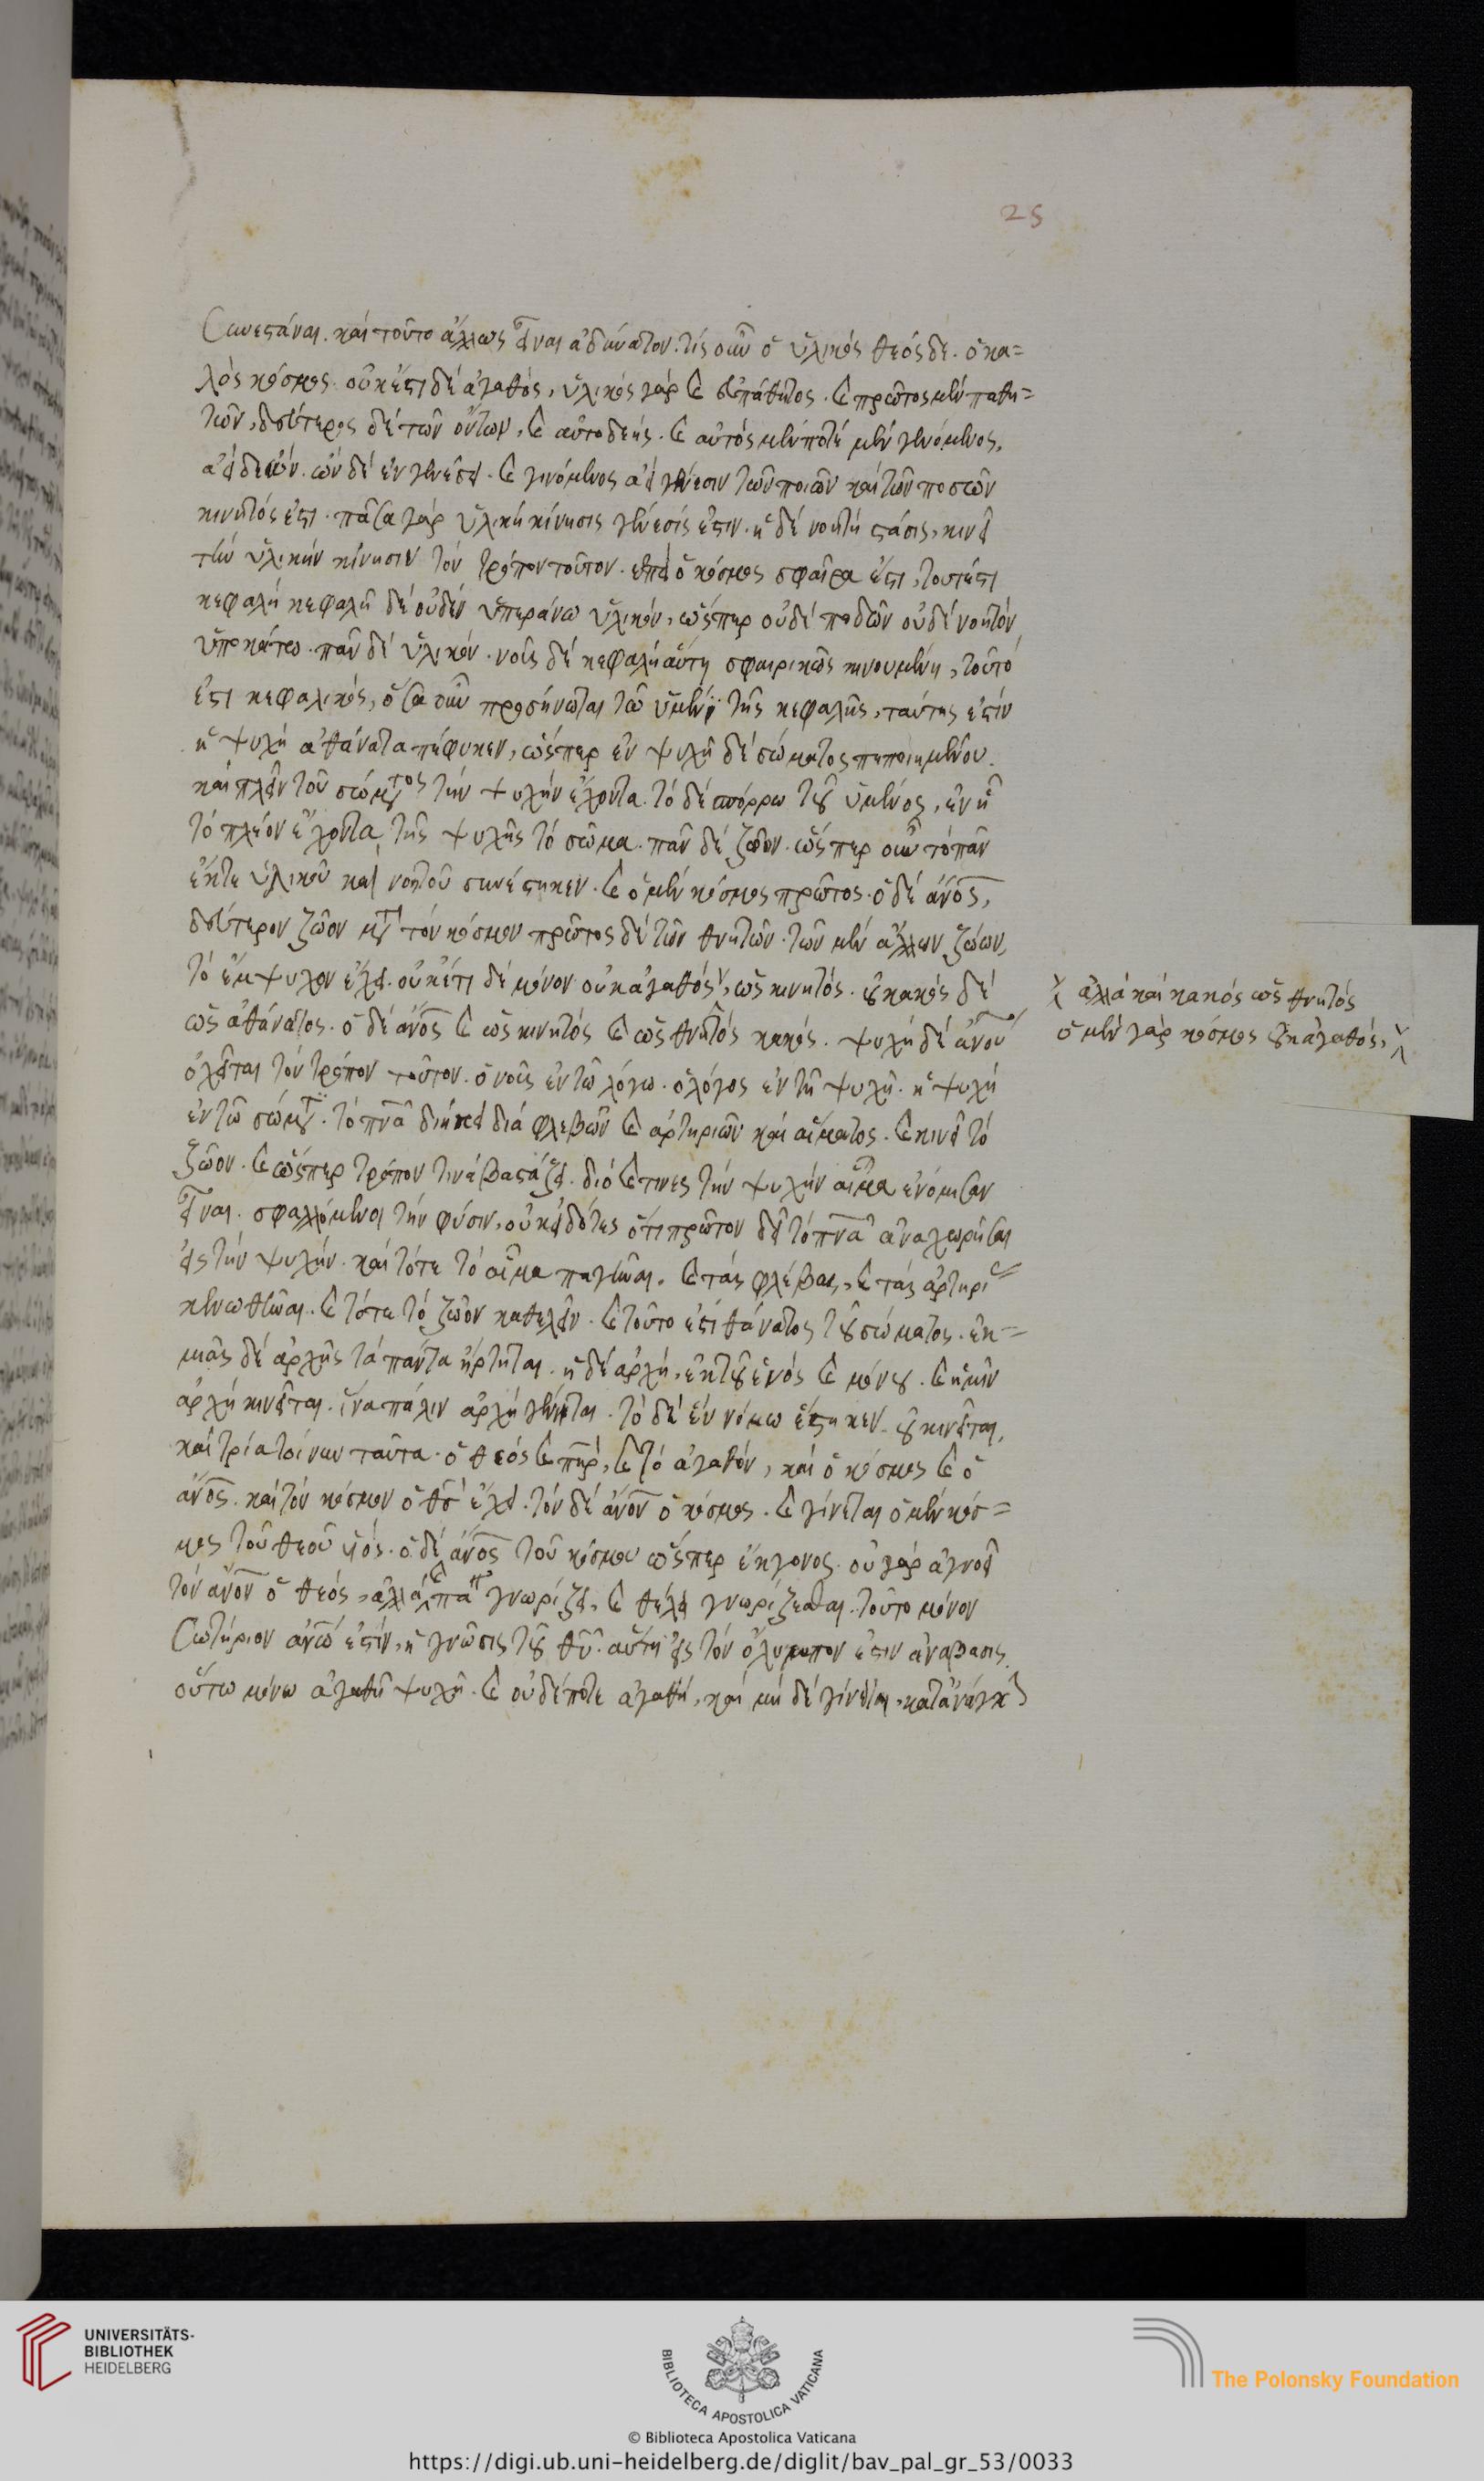 25
συνεστάναι. καὶ τοῦτο ἄλλως εἶναι ἀδύνατον. τίς οὖν ὁ ὑλικὸς θεὸς δὲ. ὁ κα=
λὸς κόσμος. οὐκ ἔστι δὲ ἀγαθός, ὑλικὸς γὰρ καὶ εὐπάθητος. καὶ πρῶτος μὲν παθη=
τῶν, δεύτερος δὲ τῶν ὄντων, καὶ αὐτοδεής. καὶ αὐτὸς μὲν ποτὲ μὲν γενόμενος,
ἀεὶ δὲ ὤν. ὢν δὲ ἐν γενέσει. καὶ γινόμενος ἀεὶ γένεσιν τῶν ποιῶν καὶ τῶν ποσῶν
κινητός ἐστι. πᾶσα γὰρ ὑλικὴ κίνησις γένεσίς ἐστιν. ἡ δὲ νοητὴ στάσις, κινεῖ
τὴν ὑλικὴν κίνησιν τὸν τρόπον τοῦτον. ἐπεὶ ὁ κόσμος σφαῖρα ἐστι, τουτέστι
κεφαλὴ κεφαλῆ δὲ οὐδὲν ὑπεράνω ὑλικόν, ὥσπερ οὐδὲ ποδῶν οὐδὲ νοητὸν
ὑποκάτω. πᾶν δὲ ὑλικόν. νοῦς δὲ κεφαλὴ αὕτη σφαιρικῶς κινουμένη, τοῦτό
ἐστι κεφαλικός, ὅσα οὖν προσήνωται τῶ ὑμένι τῆς κεφαλῆς, ταύτης ἐστὶν
ἡ ψυχὴ ἀθάνατα πέφυκεν, ὥσπερ ἐν ψυχῆ δὲ σώματος πεποιημένου.
καὶ πλεῖν τοῦ σώματος τὴν ψυχὴν ἔχοντα. τὸ δὲ πόρρω τοῦ ὑμένος, ἐν ἧ
τὸ πλέον ἔχοντα τῆς ψυχῆς τὸ σῶμα. πᾶν δὲ ζῶον. ὥσπερ οὖν τὸ πᾶν
ἔκ τε ὑλικοῦ καὶ νοητοῦ συνέστηκεν. καὶ ὁ μὲν κόσμος πρῶτος. ὁ δὲ ἄνος,
δεύτερον ζῶον μετὰ τὸν κόσμον πρῶτος δὲ τῶν θνητῶν. τῶν μὲν ἄλλων ζώων,
τὸ ἔμψυχον ἔχει. οὐκέτι δὲ μόνον οὐκ ἀγαθός, ὡς κινητός. οὐ κακὸς δὲ
ὡς ἀθάνατος. ὁ δὲ ἄνος καὶ ὡς κινητὸς καὶ ὡς θνητὸς κακός. ψυχὴ δὲ ἄνου
ἀλλὰ καὶ κακὸς ὡς θνητός
ὁ μὲν γὰρ κόσμος οὐκ ἀγαθός,
ὀχεῖται τὸν τρόπον τοῦτον. ὁ νοῦς ἐν τῶ λόγω. ὁ λόγος ἐν τῆ ψυχῆ. ἡ ψυχὴ
ἐν τῶ σώματι. τὸ πνα διήκει διὰ φλεβῶν καὶ ἀρτηριῶν καὶ αἵματος. καὶ κινεῖ τὸ
ζῶον. καὶ ὥσπερ τρόπον τινὰ βαστάζει. διὸ καὶ τινες τὴν ψυχὴν αἷμα ἐνόμισαν
εἶναι. σφαλλόμενοι τὴν φύσιν, οὐκ εἰδότες ὅτι πρῶτον δεῖ τὸ πνα ἀναχωρῆσαι
εἰς τὴν ψυχήν. καὶ τότε τὸ αἷμα παγῆναι. καὶ τὰς φλέβας, καὶ τὰς ἀρτηρίας
κενωθῆναι. καὶ τότε τὸ ζῶον καθελεῖν. καὶ τοῦτο ἐστὶ θάνατος τοῦ σώματος. ἐκ=
μιᾶς δὲ ἀρχῆς τὰ πάντα ἤρτηται. ἡ δὲ ἀρχή, ἐκ τοῦ ἑνὸς καὶ μόνου. καὶ ἡ μὲν
ἀρχὴ κινεῖται. ἵνα πάλιν ἀρχὴ γένηται. τὸ δὲ ἓν νόμω ἕστηκεν. οὐ κινεῖται,
καὶ τρία τοίνυν ταῦτα. ὁ θεὸς καὶ πηρ, καὶ τὸ ἀγαθόν, καὶ ὁ κόσμος καὶ ὁ
ἄνος. καὶ τὸν κόσμον ὁ θς ἔχει. τὸν δὲ ἄνον ὁ κόσμος. καὶ γίνεται ὁ μὲν κόσ=
μος τοῦ θεοῦ υἱός. ὁ δὲ ἄνος τοῦ κόσμου ὥσπερ ἔκγονος. οὐ γὰρ ἀγνοεῖ
τὸν ἄνον ὁ θεός, ἀλλὰ καὶ πάνυ γνωρίζει, καὶ θέλει γνωρίζεσθαι. τοῦτο μόνον
σωτήριον ἀνω ἐστίν, ἡ γνῶσις τοῦ θυ. αὕτη εἰς τὸν ὄλυμπον ἐστιν ἀνάβασις.
οὕτω μόνω ἀγαθὴ ψυχή. καὶ οὐδέποτε ἀγαθή, καὶ μὴ δὲ γίνεται, κατ' ἀνάγκην
UNIVERSITÄTS-
BIBLIOTHEK
HEIDELBERG
BIBLIOTECA APOSTOLICA VATICANA
The Polonsky Foundation
© Biblioteca Apostolica Vaticana
https://digi.ub.uni-heidelberg.de/diglit/bav_pal_gr_53/0033